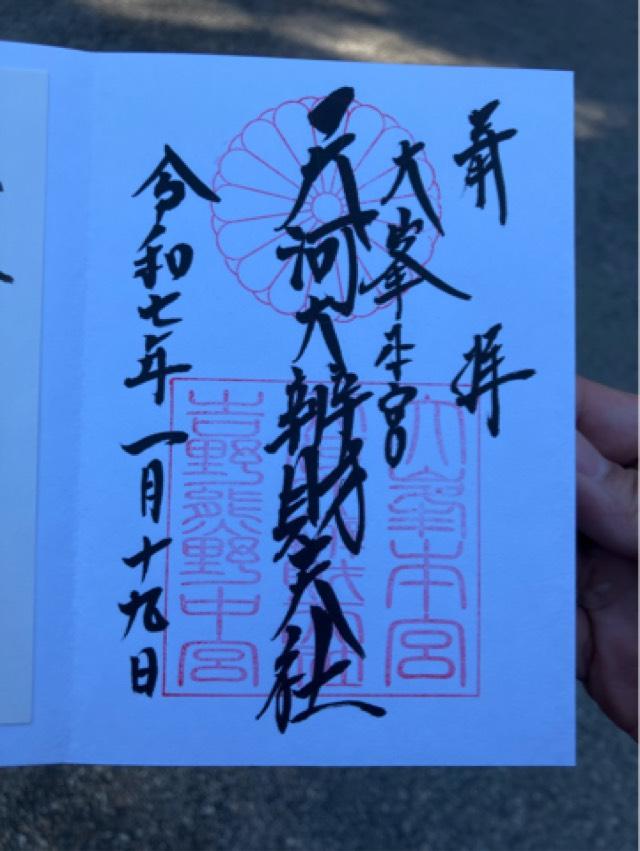 奉拝
大峯本宮
天河大辨財天社
令和七年一月十九日
大峯本宮
吉野熊野中宮